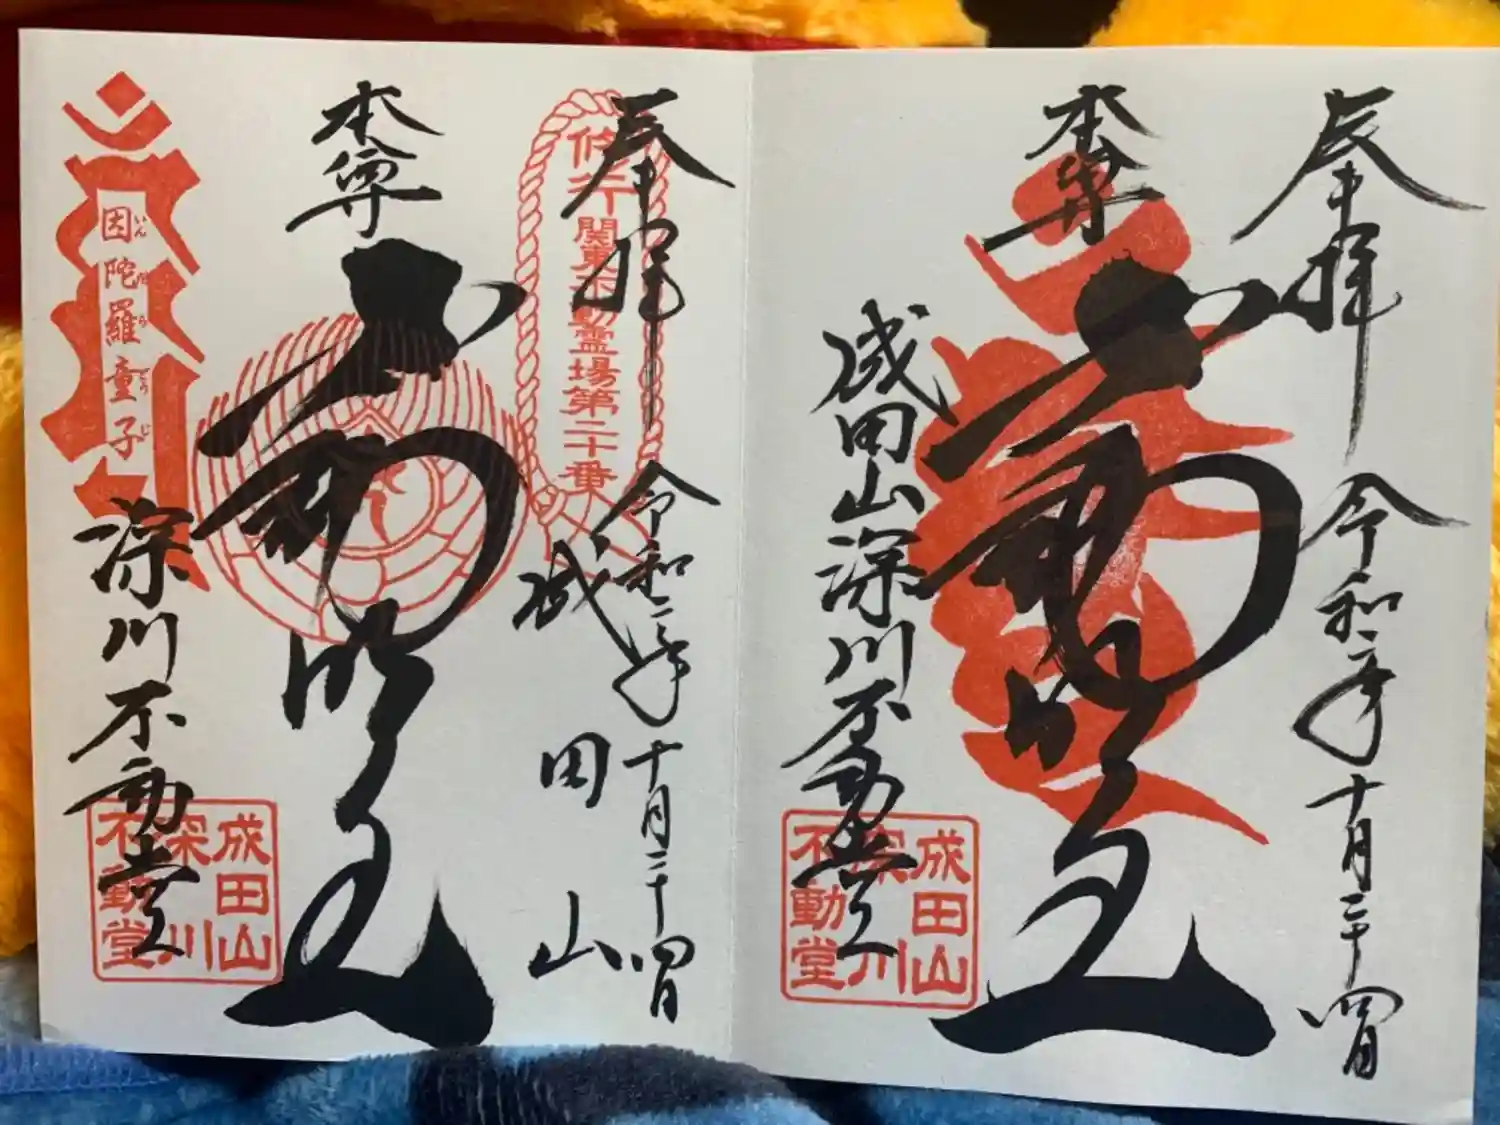 奉拝
令和二年十月二十四日
本尊
不動明王
成田山深川不動堂
成田山
深川
不動堂
奉拝
令和二年十月二十四日
修行
関東不動霊場第二十番
成田山
本尊
不動明王
因陀羅童子
いんだらどうじ
深川不動堂
成田山
深川
不動堂